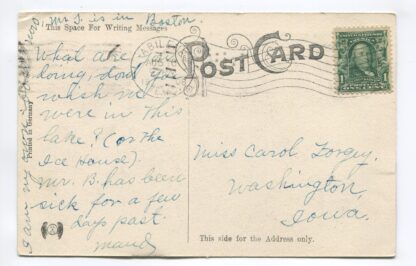 Mr. S. is in Boston.
This Space For Writing Messages
What are
doing, don't you
wish we
were in this
lake? (or the
Ice House)
Mr. B. has been
sick for a few
days past.
Maud
I am my
Printed in Germany
POST CARD
1
Miss Carol Forgey.
Washington,
Iowa.
This side for the Address only.